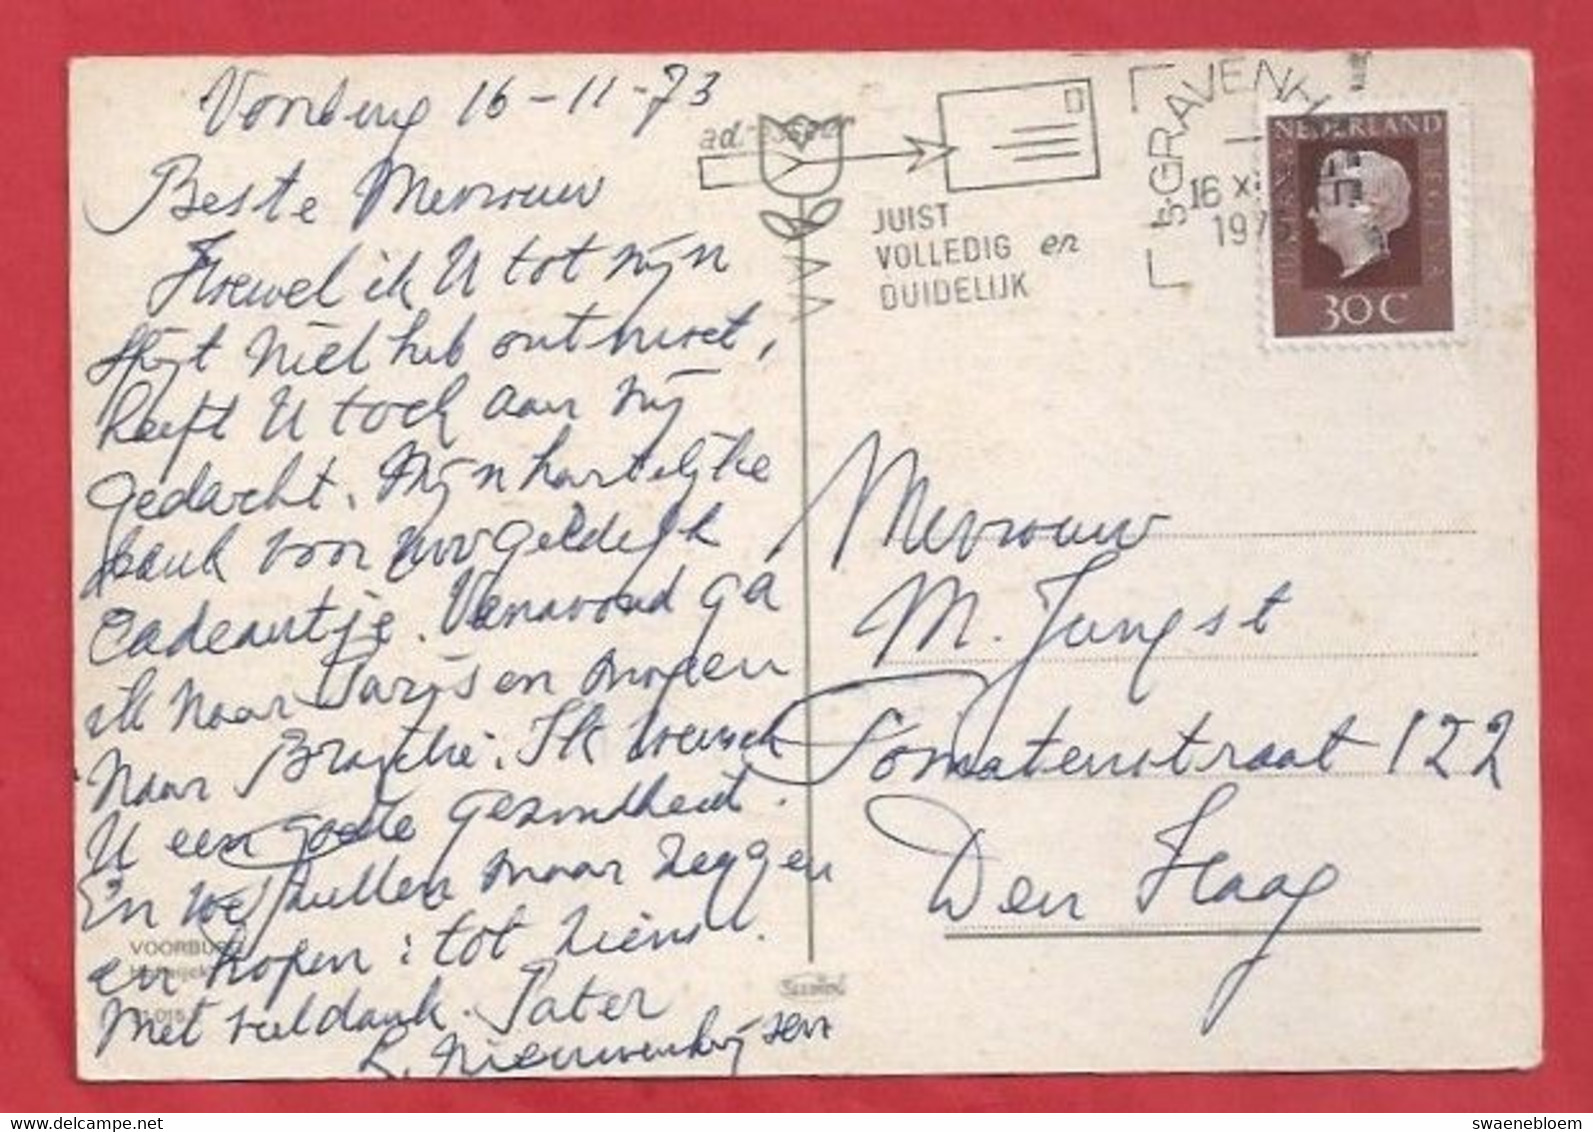 Voorburg 16-11-73
Beste Mevrouw
Hoewel ik U tot mijn
spijt niet heb ontmoet,
heeft U toch aan mij
gedacht. Mijn hartelijke
dank voor Uw geldelijk
Cadeautje. Vanavond ga
ik naar Parijs en morgen
naar Brazilië. Ik wensch
U een goede gezondheid.
En we zullen maar zeggen
en hopen: tot ziens.
Met veel dank. Pater
L. Nieuwenhuijsen
VOORBURG
adresseer
JUIST
VOLLEDIG en
DUIDELIJK
16 X
197
NEDERLAND
30 C
Mevrouw
M. Jungst
Tomatenstraat 122
Den Haag
swaenebloem